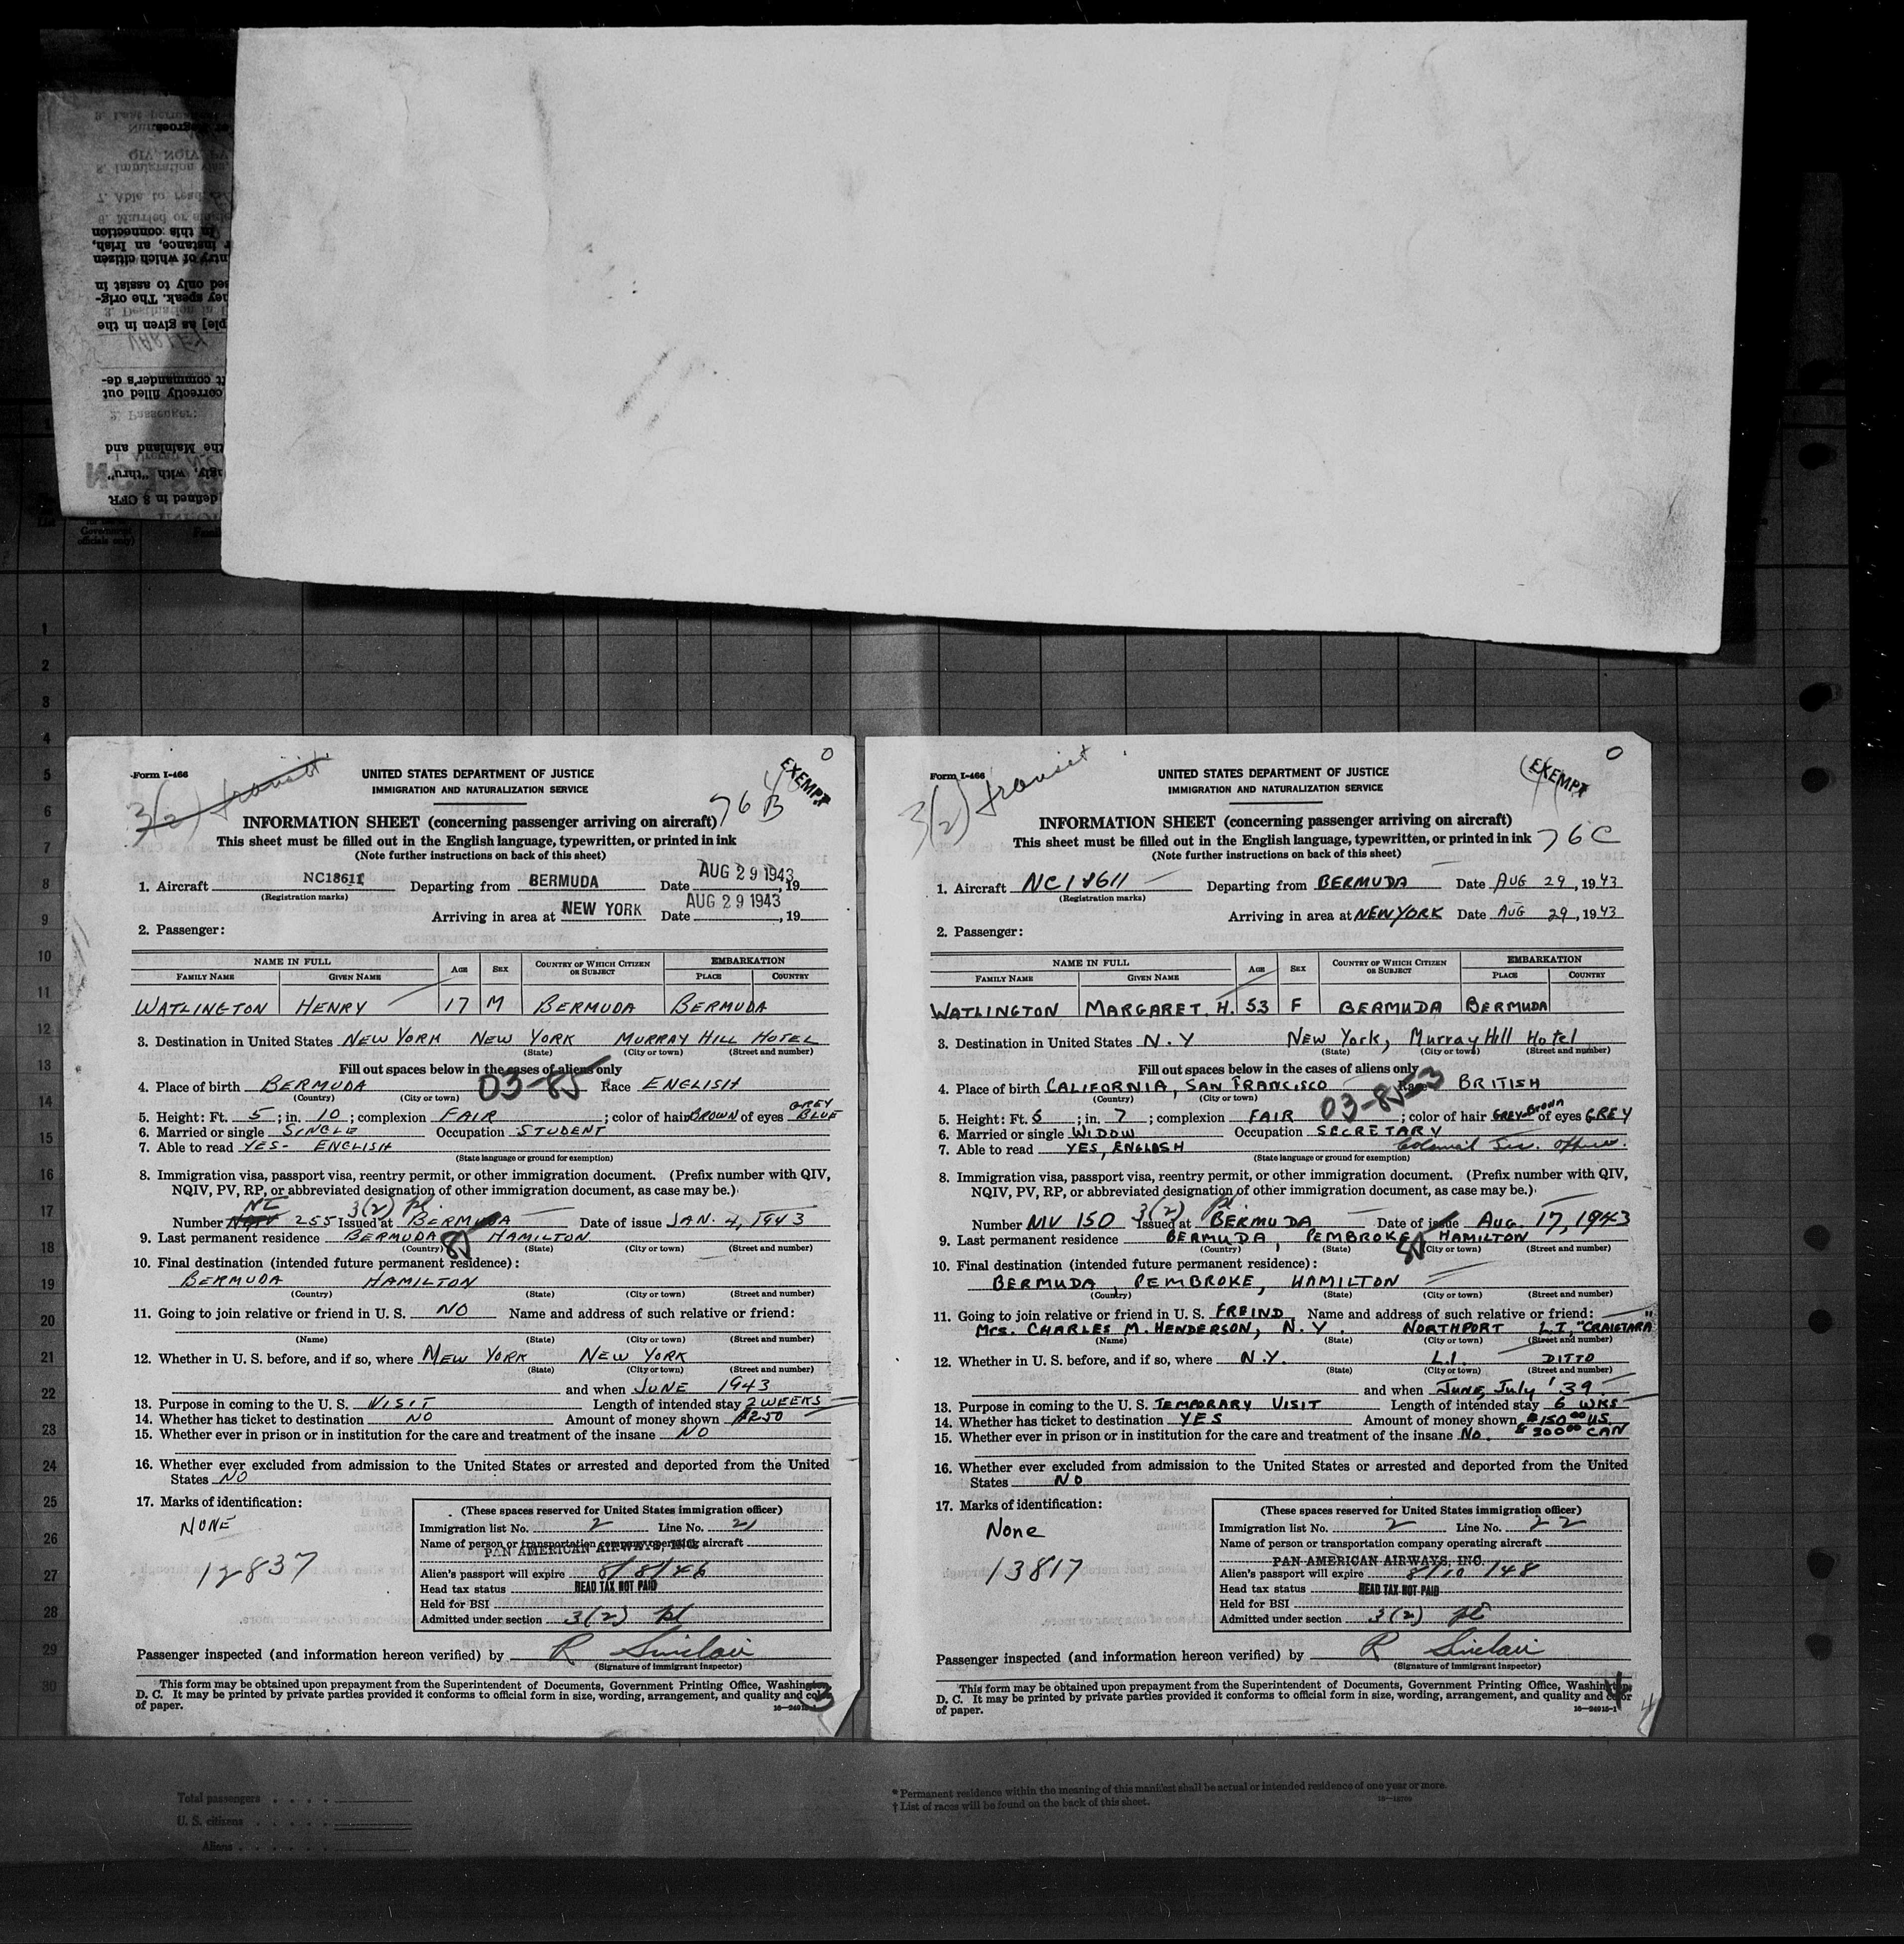 Form I-466
3(2) transit
0
EXEMPT
UNITED STATES DEPARTMENT OF JUSTICE
IMMIGRATION AND NATURALIZATION SERVICE
76 B
INFORMATION SHEET (concerning passenger arriving on aircraft)
This sheet must be filled out in the English language, typewritten, or printed in ink
(Note further instructions on back of this sheet)
1. Aircraft NC18611 Departing from BERMUDA Date AUG 29 1943, 19
(Registration marks)
Arriving in area at NEW YORK Date AUG 29 1943, 19
2. Passenger:
NAME IN FULL AGE SEX COUNTRY OF WHICH CITIZEN OR SUBJECT EMBARKATION
FAMILY NAME GIVEN NAME PLACE COUNTRY
WATLINGTON HENRY 17 M BERMUDA BERMUDA
3. Destination in United States NEW YORK NEW YORK MURRAY HILL HOTEL
(State) (City or town) (Street and number)
Fill out spaces below in the cases of aliens only
4. Place of birth BERMUDA 03-85 Race ENGLISH
(Country) (City or town)
5. Height: Ft. 5; in. 10; complexion FAIR; color of hair BROWN of eyes GREY BLUE
6. Married or single SINGLE Occupation STUDENT
7. Able to read YES- ENGLISH
(State language or ground for exemption)
8. Immigration visa, passport visa, reentry permit, or other immigration document. (Prefix number with QIV,
NQIV, PV, RP, or abbreviated designation of other immigration document, as case may be.)
3(2) pl.
Number 255 Issued at BERMUDA Date of issue JAN. 4, 1943
9. Last permanent residence BERMUDA 85 HAMILTON
(Country) (State) (City or town) (Street and number)
10. Final destination (intended future permanent residence):
BERMUDA HAMILTON
(Country) (State) (City or town) (Street and number)
11. Going to join relative or friend in U. S. NO Name and address of such relative or friend:
(Name) (State) (City or town) (Street and number)
12. Whether in U. S. before, and if so, where NEW YORK NEW YORK
(State) (City or town) (Street and number)
and when JUNE 1943
13. Purpose in coming to the U. S. VISIT Length of intended stay 2 WEEKS
14. Whether has ticket to destination NO Amount of money shown $250
15. Whether ever in prison or in institution for the care and treatment of the insane NO
16. Whether ever excluded from admission to the United States or arrested and deported from the United
States NO
17. Marks of identification:
NONE
12837
(These spaces reserved for United States immigration officer)
Immigration list No. 2 Line No. 21
Name of person or transportation company operating aircraft
PAN AMERICAN AIRWAYS, INC.
Alien's passport will expire 8/8/46
Head tax status HEAD TAX NOT PAID
Held for BSI
Admitted under section 3(2) pl
Passenger inspected (and information hereon verified) by R Sinclair
(Signature of immigrant inspector)
This form may be obtained upon prepayment from the Superintendent of Documents, Government Printing Office, Washington,
D. C. It may be printed by private parties provided it conforms to official form in size, wording, arrangement, and quality and color
of paper.
16—24915-1
3
Form I-466
3(2) transit
0
EXEMPT
UNITED STATES DEPARTMENT OF JUSTICE
IMMIGRATION AND NATURALIZATION SERVICE
INFORMATION SHEET (concerning passenger arriving on aircraft)
This sheet must be filled out in the English language, typewritten, or printed in ink
76 C
(Note further instructions on back of this sheet)
1. Aircraft NC18611 Departing from BERMUDA Date AUG 29, 1943
(Registration marks)
Arriving in area at NEW YORK Date AUG 29, 1943
2. Passenger:
NAME IN FULL AGE SEX COUNTRY OF WHICH CITIZEN OR SUBJECT EMBARKATION
FAMILY NAME GIVEN NAME PLACE COUNTRY
WATLINGTON MARGARET. H. 53 F BERMUDA BERMUDA
3. Destination in United States N.Y New York, Murray Hill Hotel
(State) (City or town) (Street and number)
Fill out spaces below in the cases of aliens only
4. Place of birth CALIFORNIA, SAN FRANCISCO 03-85 Race BRITISH
(Country) (City or town)
5. Height: Ft. 5; in. 7; complexion FAIR; color of hair GREY-BROWN of eyes GREY
6. Married or single WIDOW Occupation SECRETARY
7. Able to read YES, ENGLISH Colonial Sec. Office.
(State language or ground for exemption)
8. Immigration visa, passport visa, reentry permit, or other immigration document. (Prefix number with QIV,
NQIV, PV, RP, or abbreviated designation of other immigration document, as case may be.)
3(2) pl.
Number NIV 150 Issued at BERMUDA Date of issue AUG. 17, 1943
9. Last permanent residence BERMUDA, PEMBROKE, 85 HAMILTON
(Country) (State) (City or town) (Street and number)
10. Final destination (intended future permanent residence):
BERMUDA, PEMBROKE, HAMILTON
(Country) (State) (City or town) (Street and number)
11. Going to join relative or friend in U. S. FREIND Name and address of such relative or friend:
Mrs. CHARLES M. HENDERSON, N.Y. NORTHPORT L.I, "CRAIGTARA"
(Name) (State) (City or town) (Street and number)
12. Whether in U. S. before, and if so, where N.Y. L.I. DITTO
(State) (City or town) (Street and number)
and when June, July '39
13. Purpose in coming to the U. S. TEMPORARY VISIT Length of intended stay 6 WKS
14. Whether has ticket to destination YES Amount of money shown $150 00 U.S.
15. Whether ever in prison or in institution for the care and treatment of the insane No. $300 00 CAN
16. Whether ever excluded from admission to the United States or arrested and deported from the United
States NO
17. Marks of identification:
None
13817
(These spaces reserved for United States immigration officer)
Immigration list No. 2 Line No. 22
Name of person or transportation company operating aircraft
PAN AMERICAN AIRWAYS, INC.
Alien's passport will expire 8/10/48
Head tax status HEAD TAX NOT PAID
Held for BSI
Admitted under section 3(2) pl
Passenger inspected (and information hereon verified) by R Sinclair
(Signature of immigrant inspector)
This form may be obtained upon prepayment from the Superintendent of Documents, Government Printing Office, Washington,
D. C. It may be printed by private parties provided it conforms to official form in size, wording, arrangement, and quality and color
of paper.
16—24915-1
4
4
Total passengers
U. S. citizens
Aliens
* Permanent residence within the meaning of this manifest shall be actual or intended residence of one year or more.
† List of races will be found on the back of this sheet.